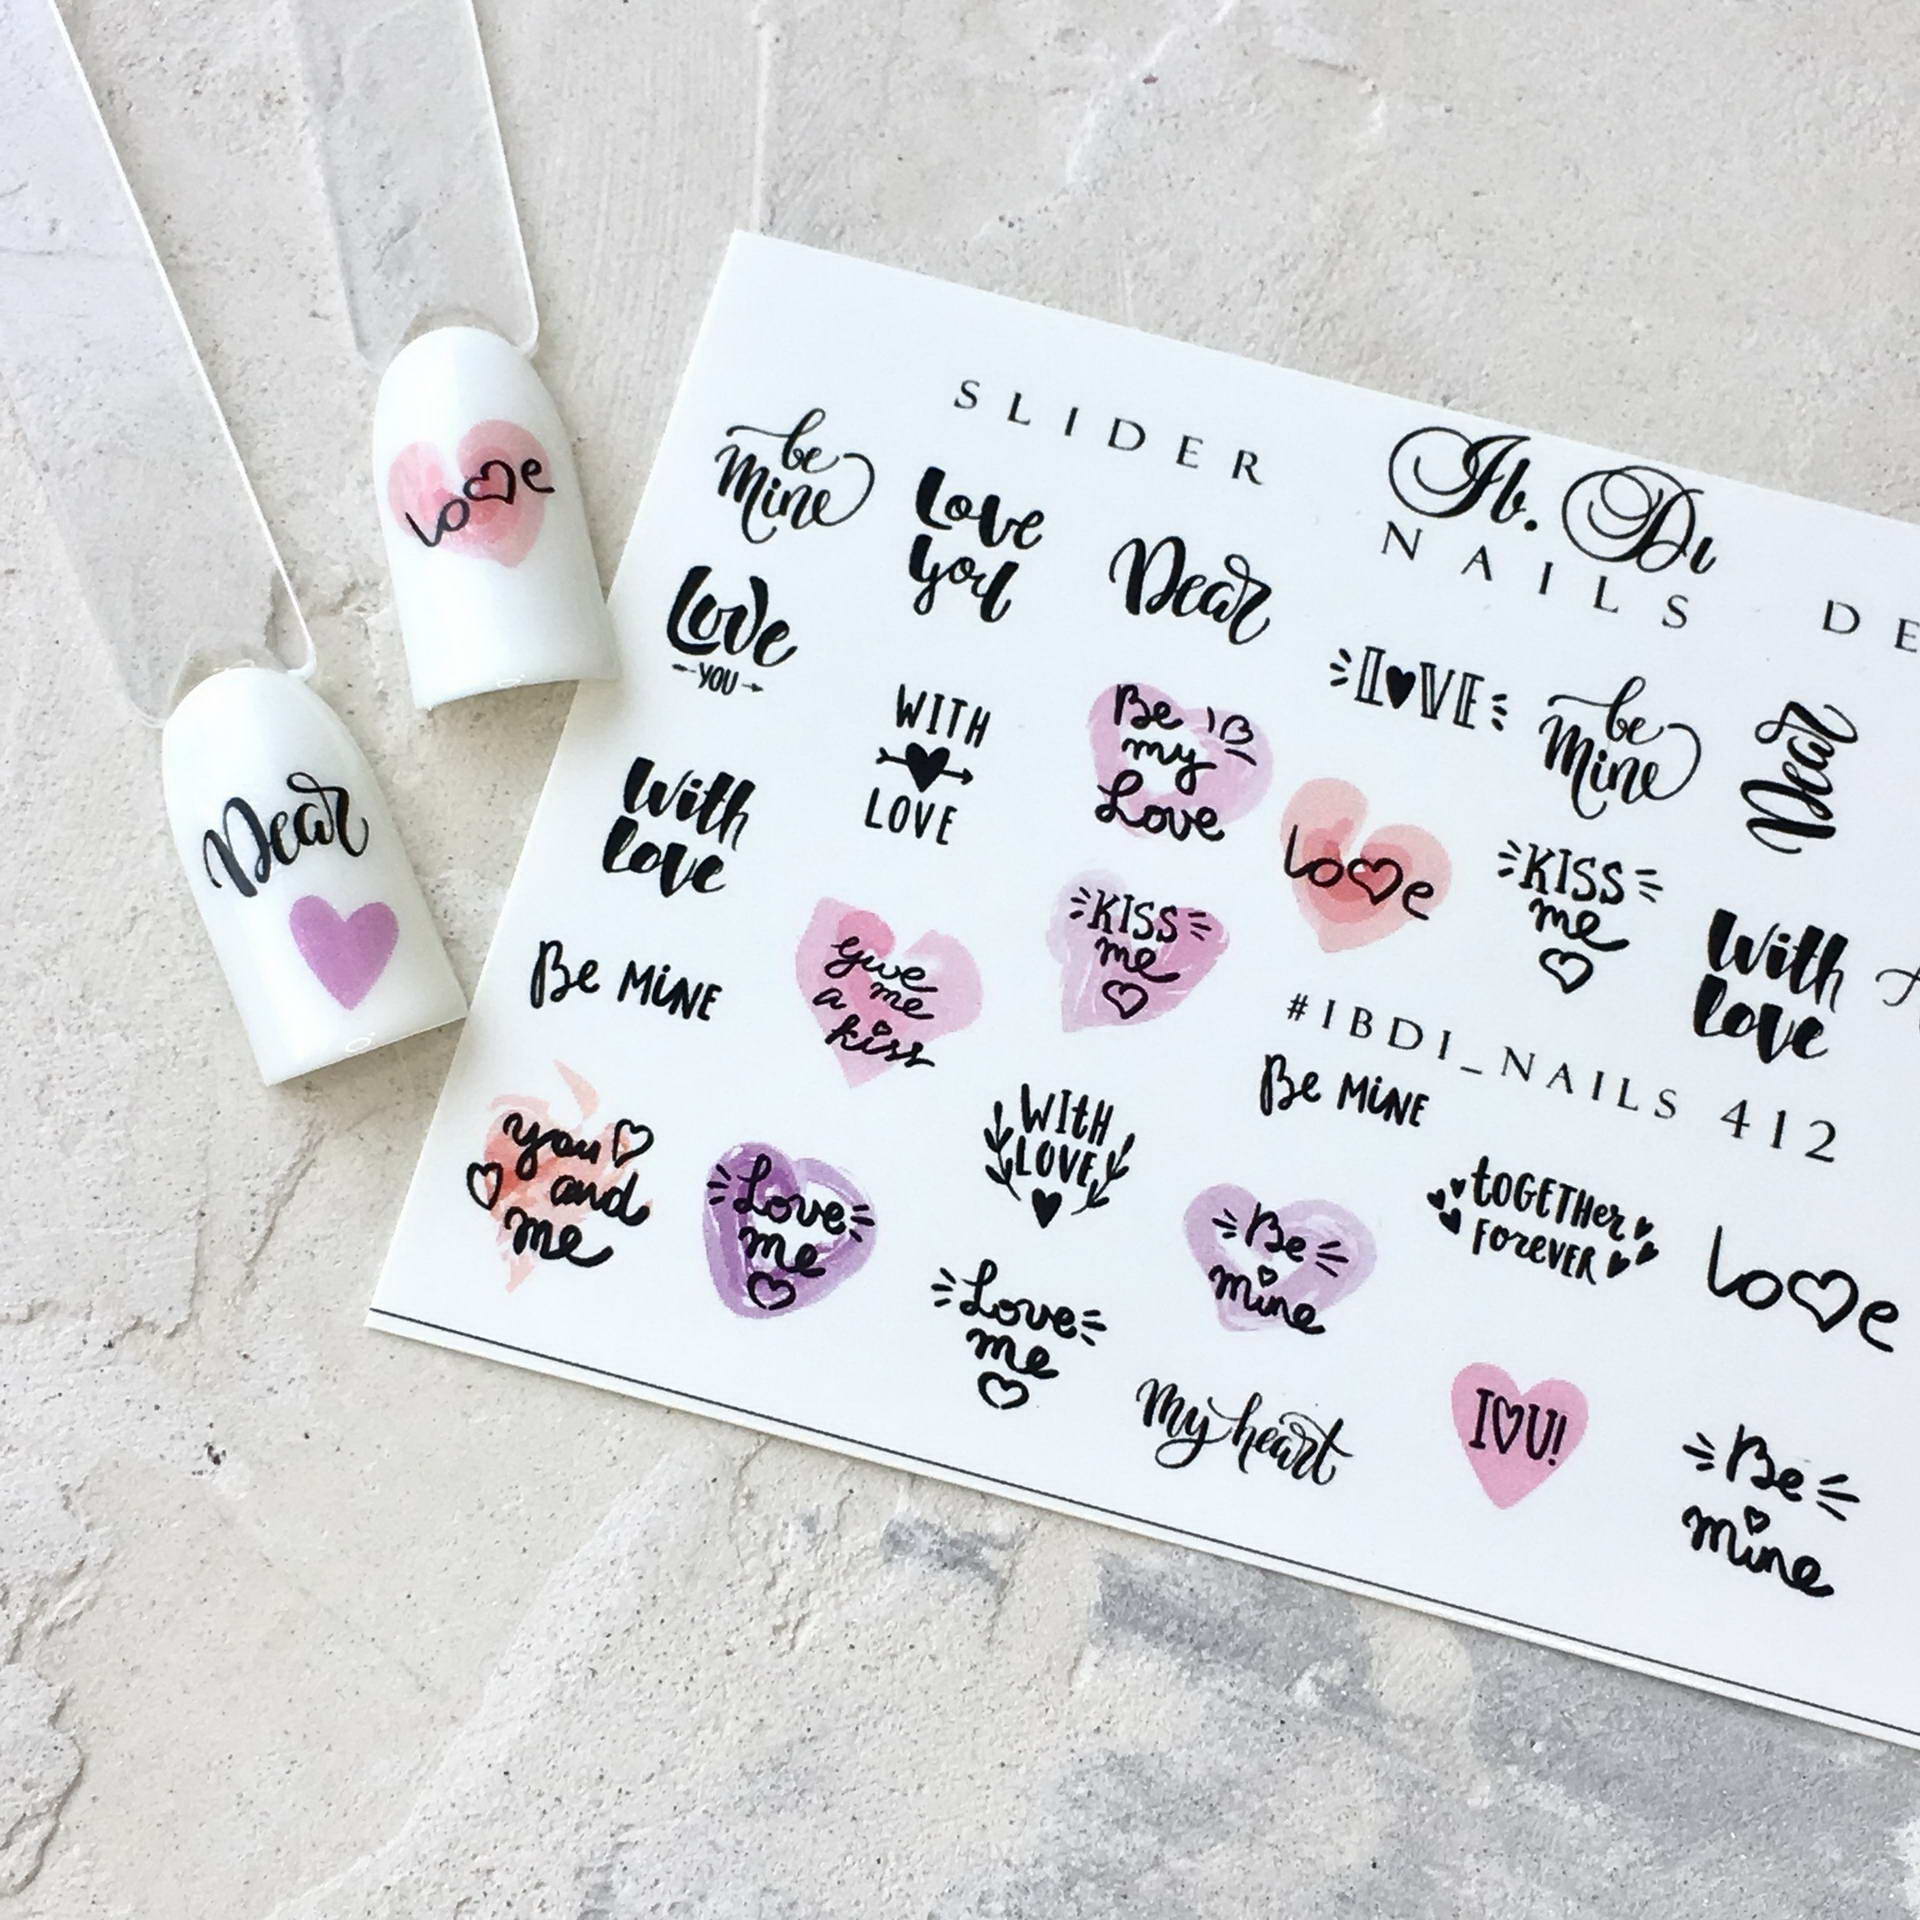 love
Dear
SLIDER
Ib. Di
NAILS
be
Mine
Love
you
Dear
Love
YOU
WITH
LOVE
Be
my
Love
LOVE
be
Mine
Dear
With
love
love
KISS
me
KISS
me
With
love
Be MiNE
give
me
a
kiss
#IBDI_NAILS 412
Be MiNE
you
and
me
Love
me
WItH
LOVE
Be
mine
tOGETHer
FOrEVER
love
Love
me
My heart
I U!
Be
mine